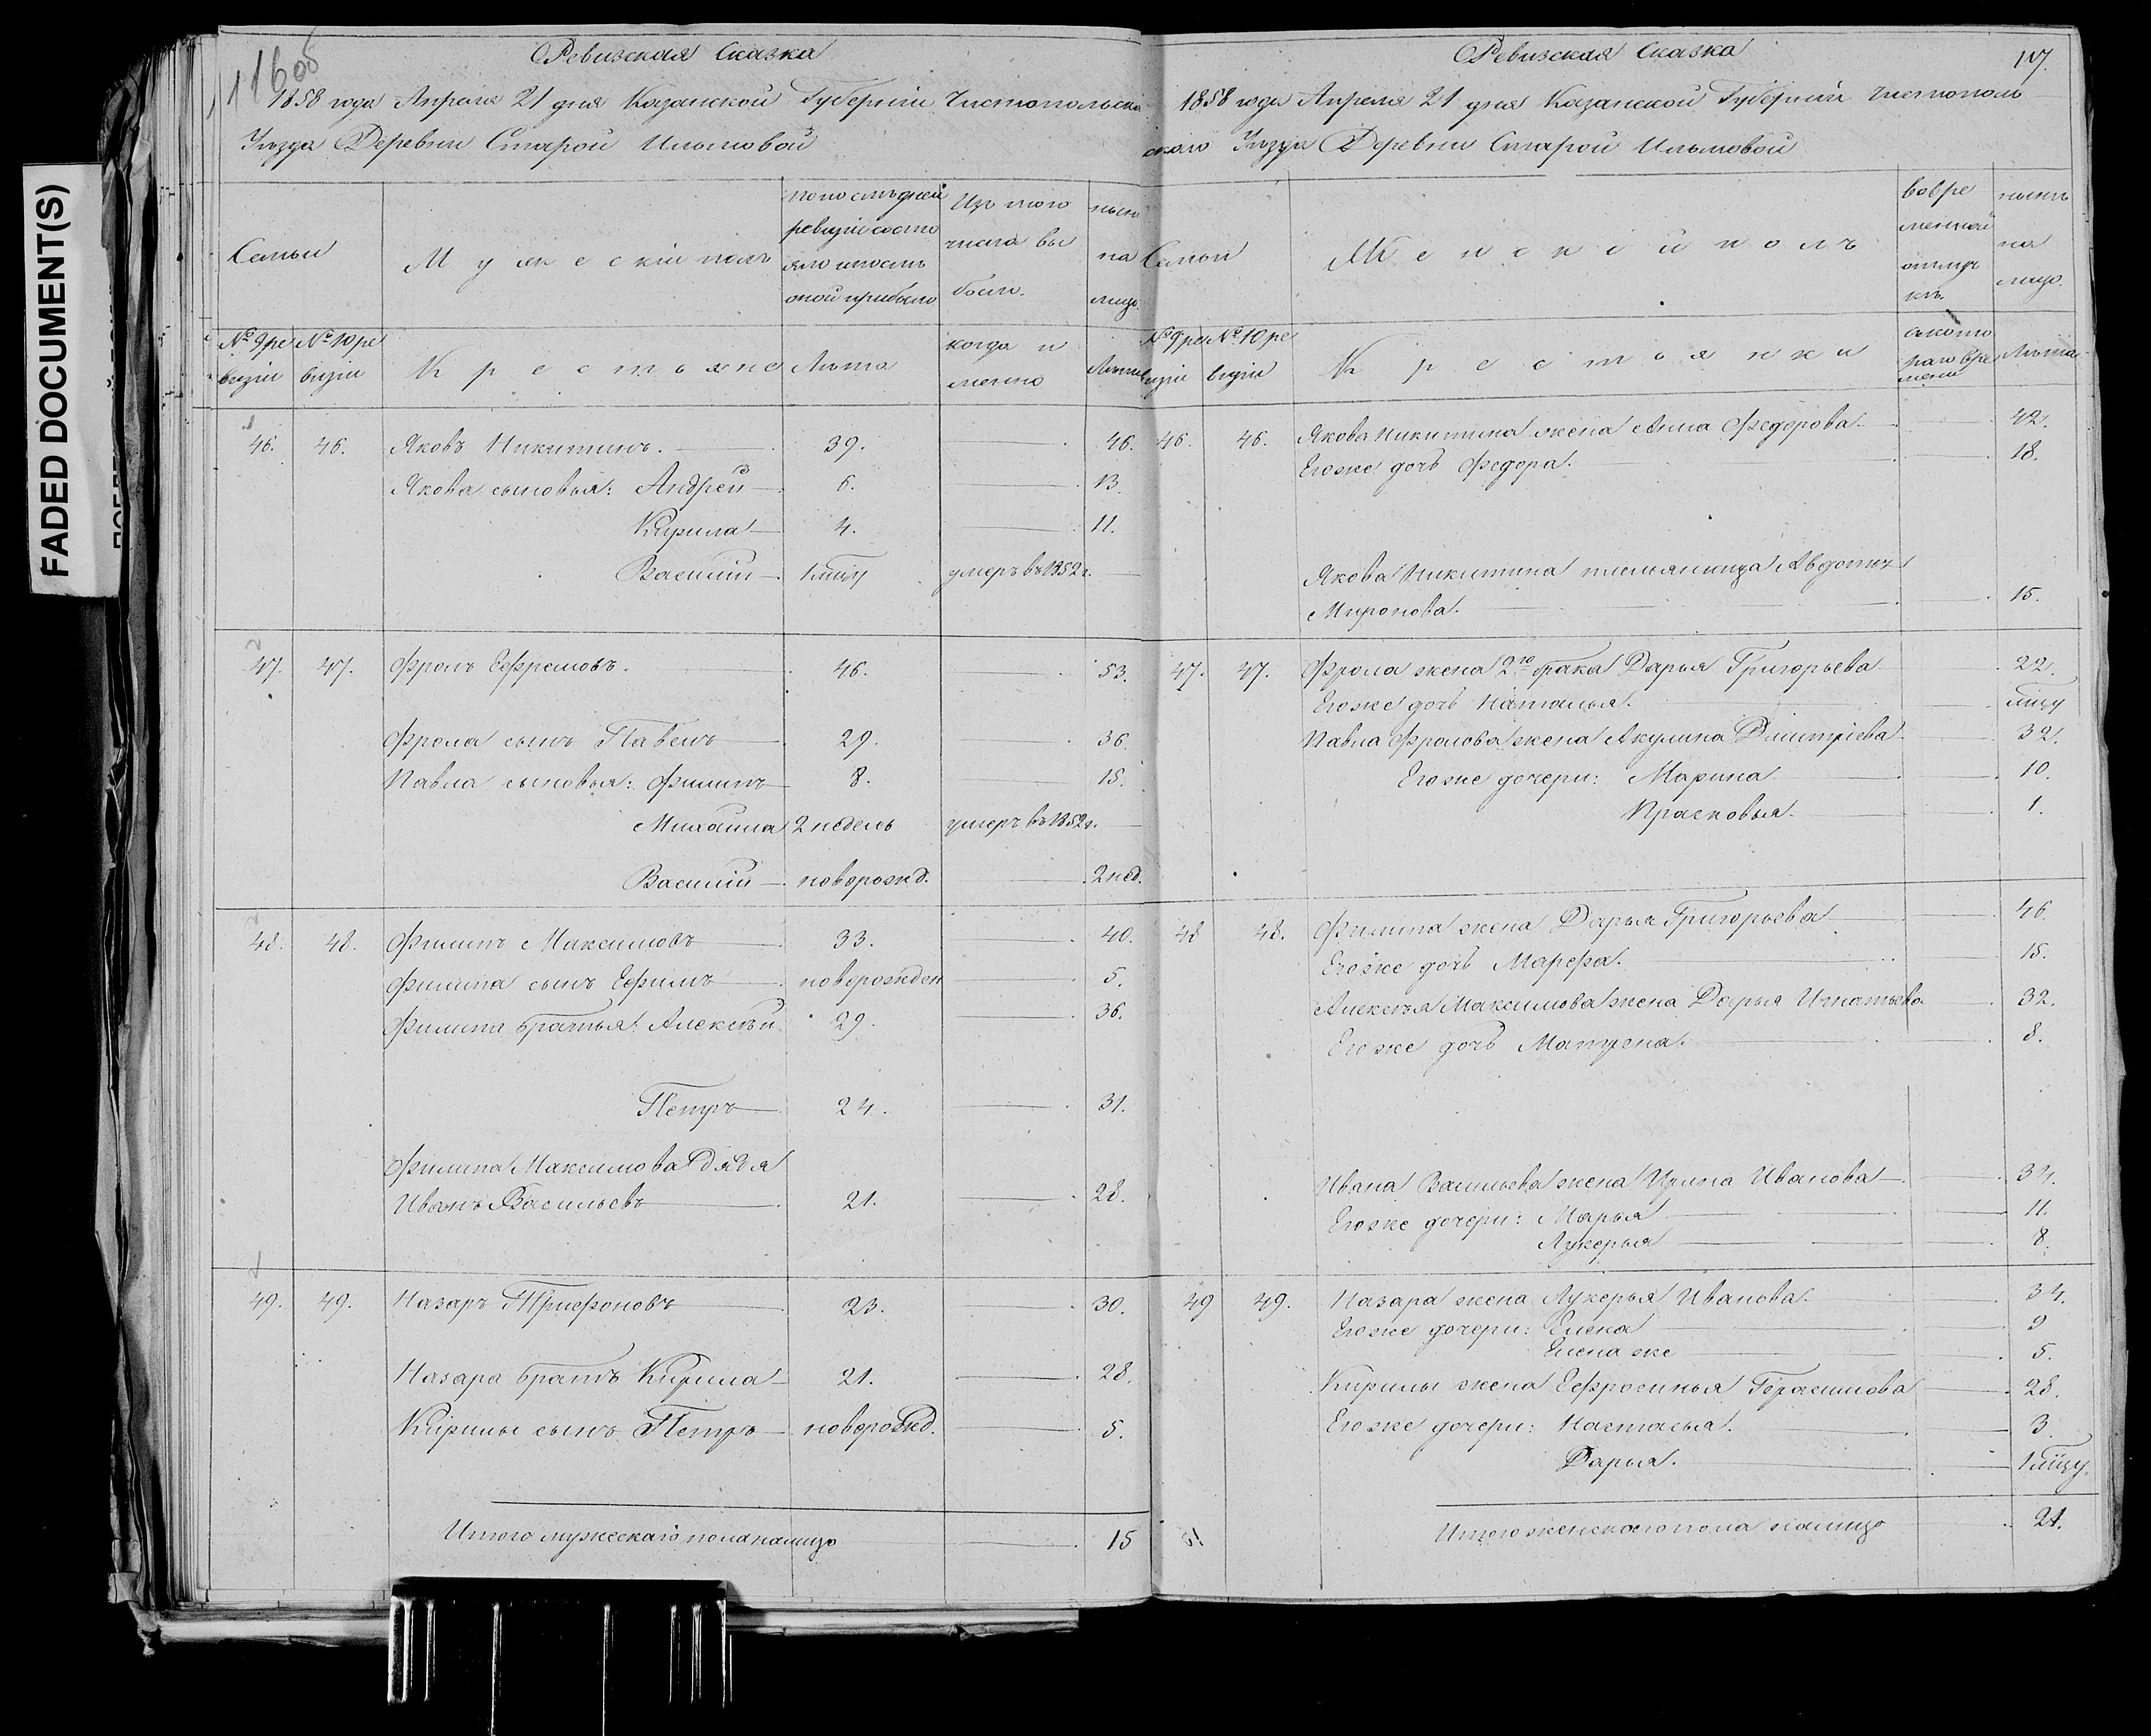 FADED DOCUMENT(S)
116 об
Ревизская Сказка
1858 года Апреля 21 дня Казанской Губернiи Чистопольска
Уѣзда Деревни Старой Ильмовой
Семьи
Мужескiй полъ
по последней ревизiи состояло и после оной прибыло
Изъ того числа выбыли.
ныне на лицо.
№ 9 ревизiи
№ 10 ревизiи
Крестьяне
Лѣта
когда именно
Лѣта
46. 46. Яковъ Никитинъ. 39. 46.
Якова сыновья: Андрей 6. 13.
Кирила 4. 11.
Василiй умеръ въ 1852 г.
47. 47. Фролъ Ефремовъ. 46. 53.
Фрола сынъ Павелъ 29. 36.
Павла сыновья: Филипъ 8. 15.
Михаила 2 недель умеръ въ 1852 г.
Василiй новорожд. 2 нед.
48. 48. Филипъ Максимовъ 33. 40.
Филипа сынъ Ефимъ новорожден 5.
Филипа братья: Алексѣй 29. 36.
Петръ 24. 31.
Филипа Максимова дядя
Иванъ Васильевъ 21. 28.
49. 49. Назаръ Трифоновъ 23. 30.
Назара братъ Кирила 21. 28.
Кирилы сынъ Петръ новорожд. 5.
Итого мужескаго пола налицо 15
Ревизская Сказка
117.
1858 года Апреля 21 дня Казанской Губернiи Чистополь
скаго Уѣзда Деревни Старой Ильмовой
Семьи
Женскiй полъ
во временной отлучкѣ.
нынѣ на лицо.
№ 9 ревизiи
№ 10 ревизiи
Крестьянки
съ котораго времени
Лѣта
46. 46. Якова Никитина жена Анна Федорова. 42.
Егоже дочь Федора. 18.
Якова Никитина племянница Авдотья
Миронова. 15.
47. 47. Фрола жена 2го брака Дарья Григорьева 22.
Егоже дочь Наталья.
Павла Фролова жена Акулина Дмитрiева 32.
Егоже дочери: Марина 10.
Прасковья 1.
48 48. Филипа жена Дарья Григорьева 46.
Егоже дочь Марфа. 15.
Алексѣя Максимова жена Дарья Игнатьева 32.
Егоже дочь Матрена. 8.
Ивана Васильева жена Ирина Иванова 34.
Егоже дочери: Марья 11.
Лукерья 8.
49 49. Назара жена Лукерья Иванова. 34.
Егоже дочери: Елена 9
Елена же 5.
Кирилы жена Ефросинья Герасимова 28.
Егоже дочери: Настасья. 3.
Дарья.
Итого женскаго пола налицо 21.